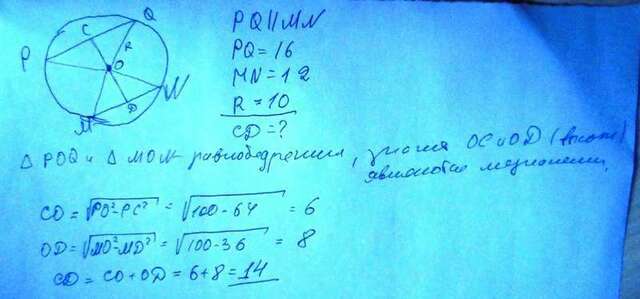 C Q
P R
O
D N
M
PQ||MN
PQ=16
MN=12
R=10
CD=?
△ POQ и △ MON равнобедренные, значит OC и OD (высоты)
являются медианами.
CO = √PO²-PC² = √100-64 = 6
OD = √MO²-MD² = √100-36 = 8
CD = CO+OD = 6+8 = 14